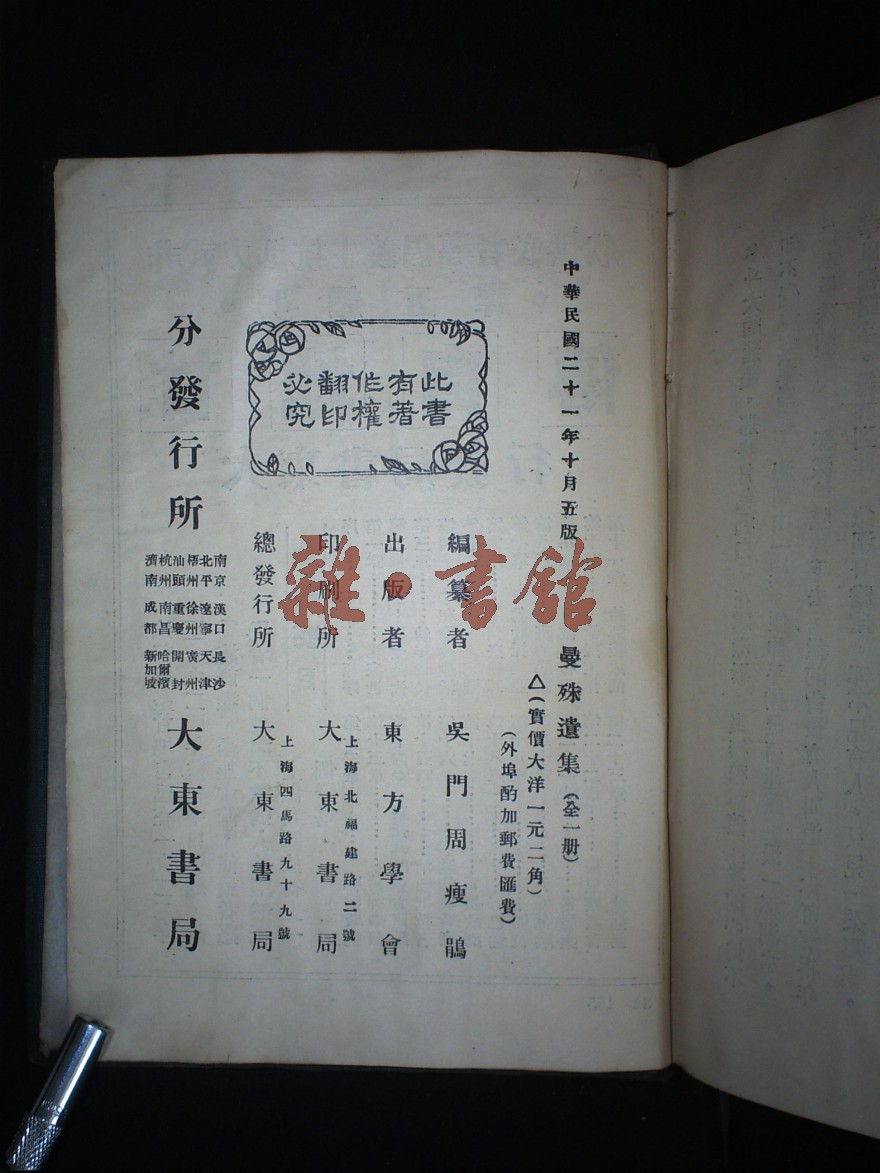 中華民國二十一年十月五版
曼殊遺集(全一册)
△(實價大洋一元二角)
(外埠酌加郵費匯費)
此書
有著
作權
翻印
必究
編纂者 吳門周瘦鵑
出版者 東方學會
上海北福建路二號
印刷所 大東書局
上海四馬路九十九號
總發行所 大東書局
南京 漢口 長沙
北平 遼寧 天津
梧州 徐州 廣州
汕頭 重慶 開封
杭州 南昌 哈爾濱
濟南 成都 新加坡
分發行所 大東書局
雜·書館